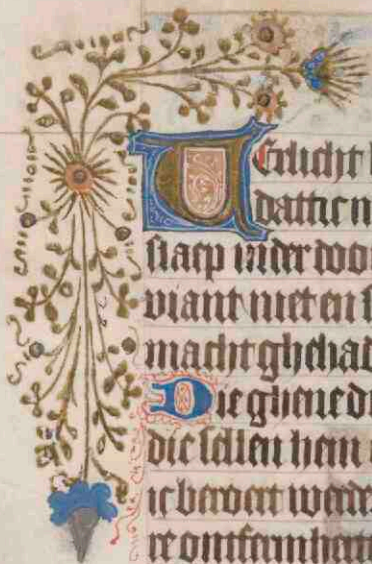 Verlicht
dattic n
slaep inder doo
viant niet en s
macht ghehad
Die ghene di
die sellen hem
ic beroert werde
re ontfermherti